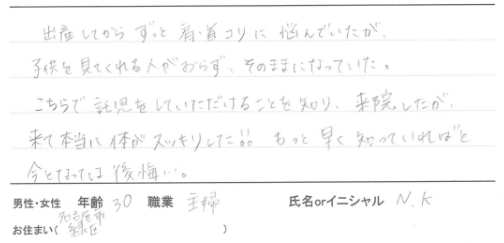 出産してからずっと肩・首コリに悩んでいたが、
子供を見てくれる人がおらず、そのままになっていた。
こちらで託児をしていただけることを知り、来院したが、
来て本当に体がスッキリした!! もっと早く知っていればと
今となっては後悔…。
男性・女性 年齢 30 職業 主婦 氏名orイニシャル N.K
お住まい(名古屋市緑区)